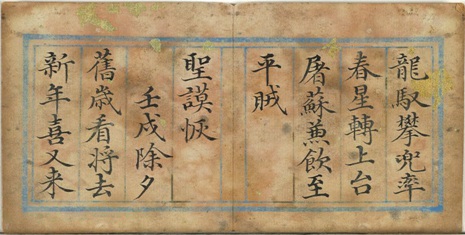 龍馭攀兜率
春星轉上台
屠蘇兼飲至
平賊
聖謨恢
壬戌除夕
舊歲看將去
新年喜又来